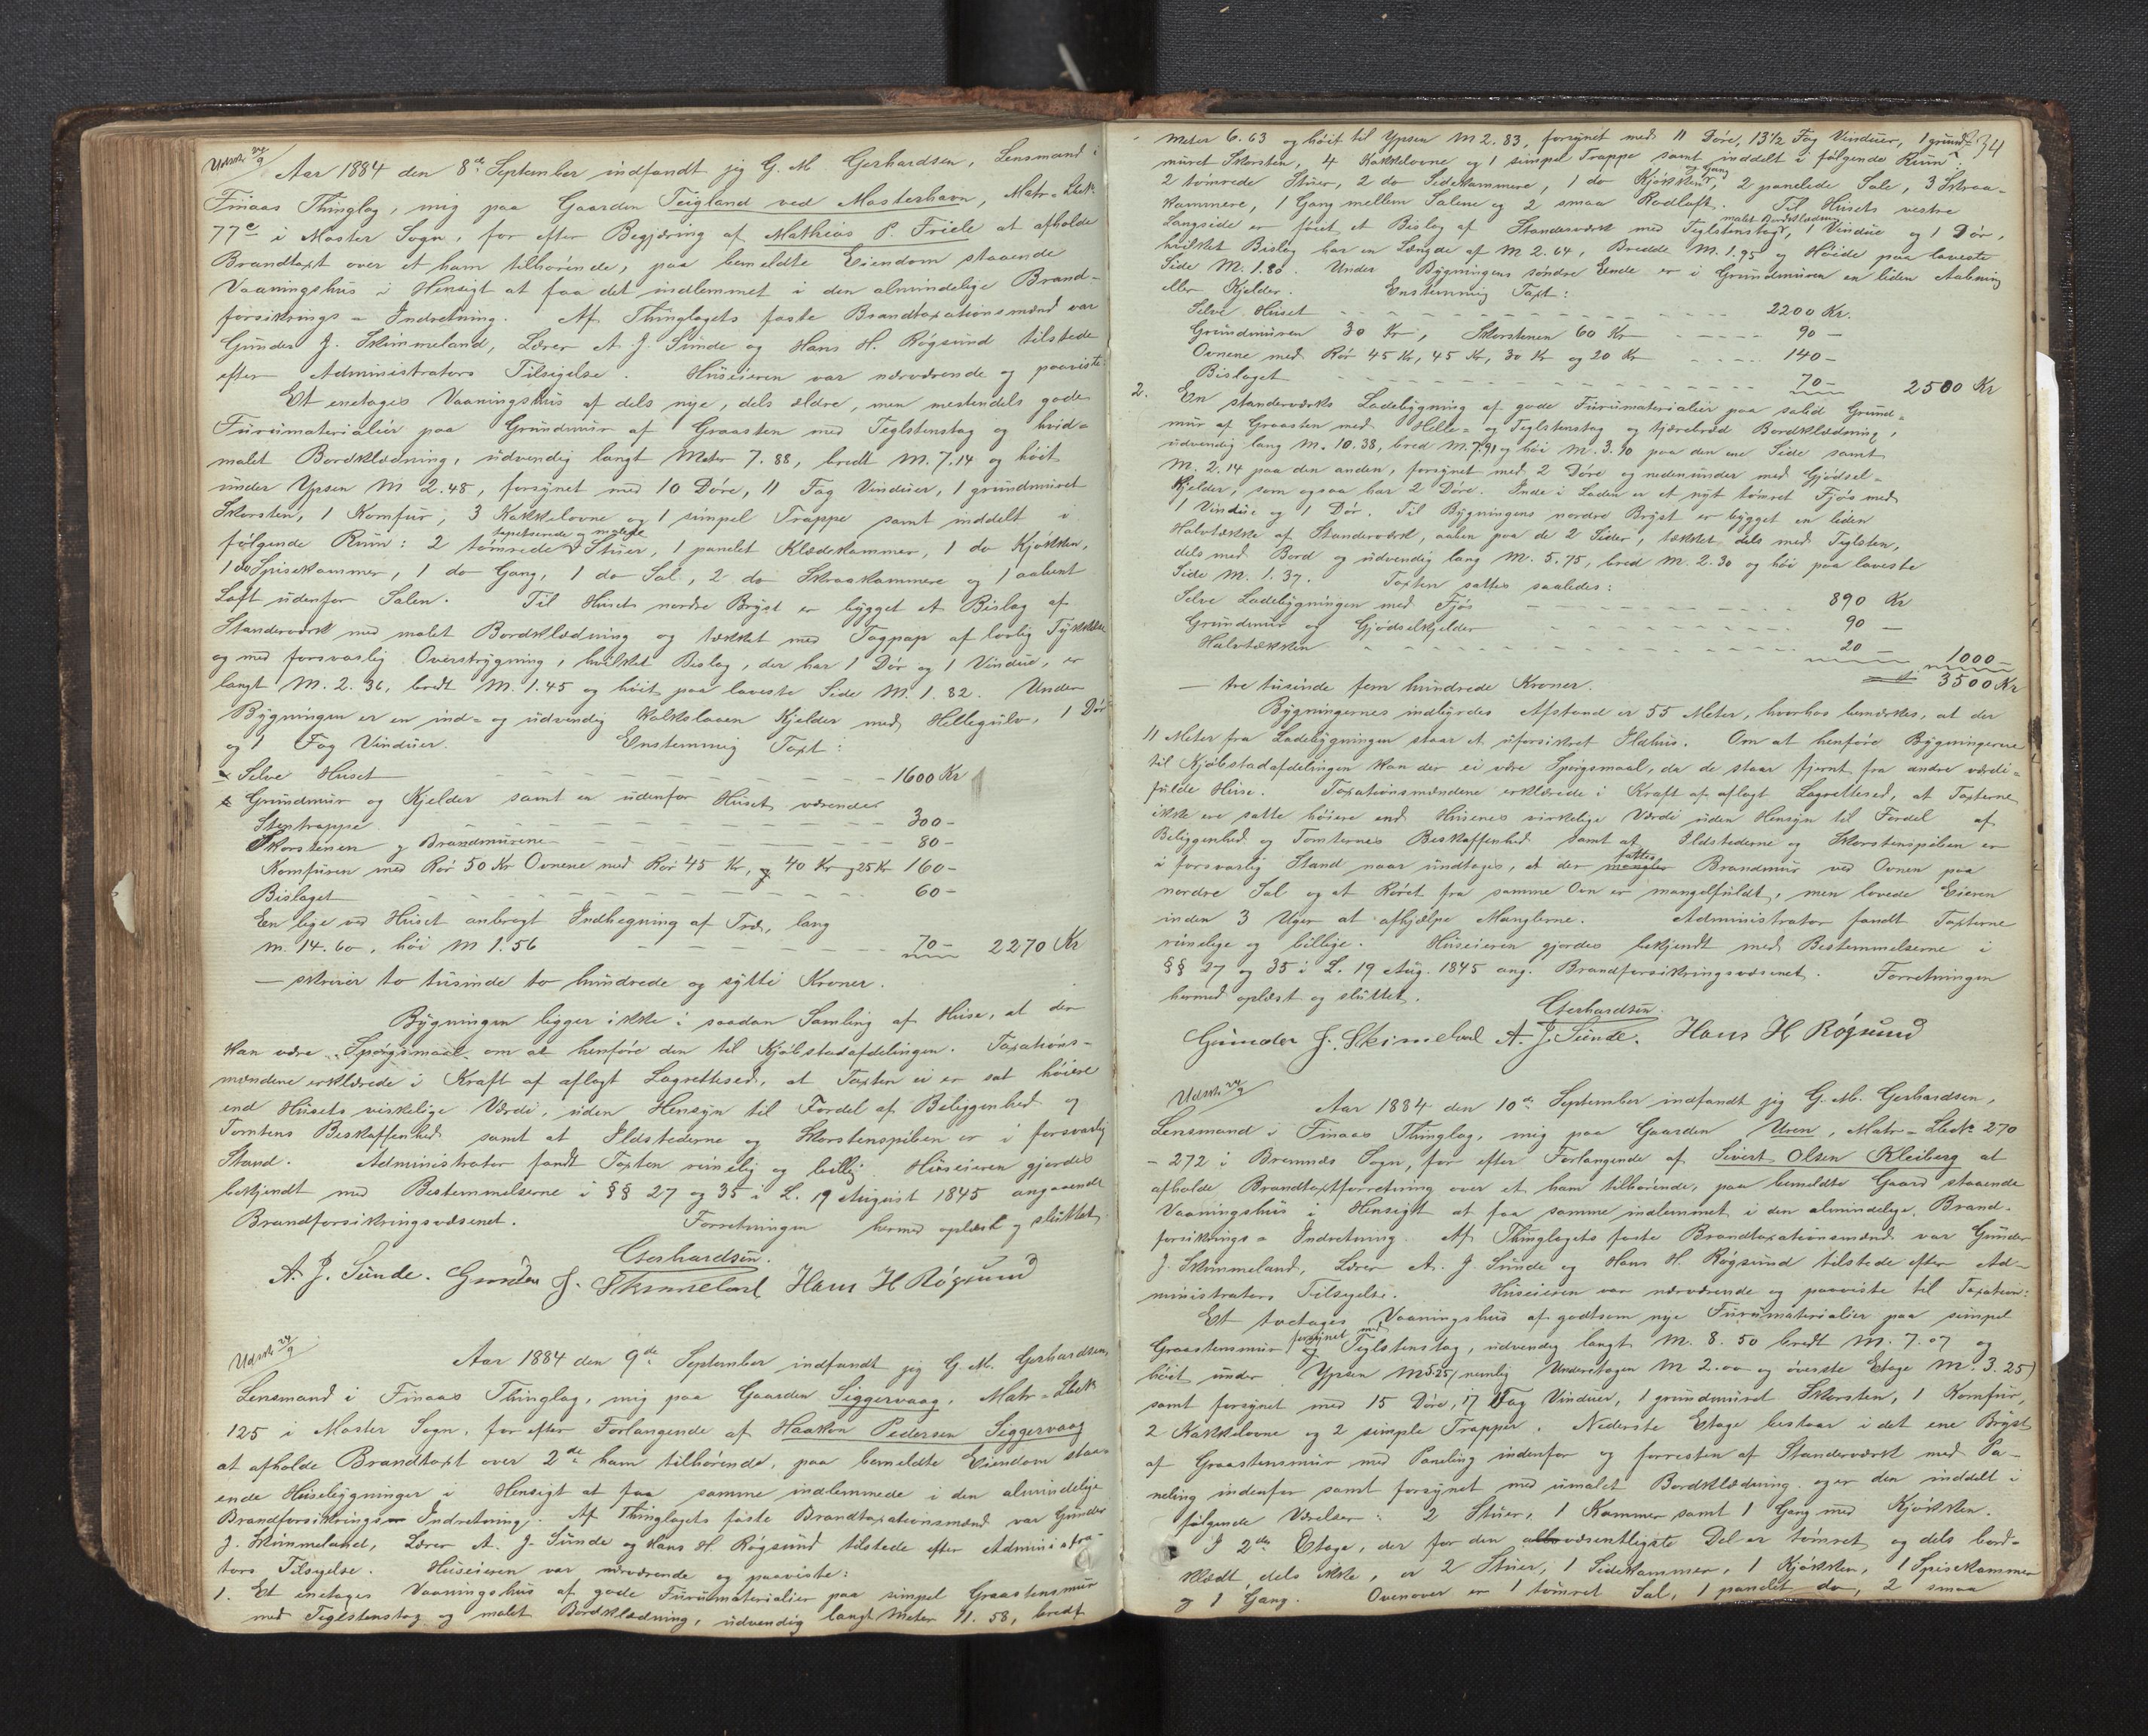 Udsk. 29/9
Aar 1884 den 8de September indfandt jeg G. M. Gerhardsen, Lensmand i
Finaas Thinglag, mig paa Gaarden Teigland ved Mosterhavn, Matr.-Lbek.
77c i Moster Sogn, for efter Begjæring af Mathias P. Friele at afholde
Brandtaxt over et ham tilhørende, paa bemeldte Eiendom staaende
Vaaningshus i Hensigt at faa det indlemmet i den almindelige Brand-
forsikrings-Indretning. Af Thinglagets faste Brandtaxationsmænd var
Gunder J. Skimmeland, Lærer A. J. Sunde og Hans H. Røgsund tilstede
efter Administrators Tilsigelse. Huseieren var nærværende og paaviste:
Et enetages Vaaningshus af dels nye, dels ældre, men mestendels gode
Furumaterialier paa Grundmur af Graasten med Teglstenstag og hvid-
malet Bordklædning, udvendig langt Meter 7.88, bredt M. 7.14 og høit
under Ypsen M 2.48, forsynet med 10 Døre, 11 Fag Vinduer, 1 grundmuret
Skorsten, 1 Komfur, 3 Kakkelovne og 1 simpel Trappe samt inddelt i
følgende Rum: 2 tømrede tapetserede og malede Stuer, 1 panelet Klædekammer, 1 do Kjøkken,
1 do Spisekammer, 1 do Gang, 1 do Sal, 2 do Skraakammere og 1 aabent
Loft udenfor Salen. Til Husets nordre Bryst er bygget et Bislag af
Standerværk med malet Bordklædning og tækket med Tagpap af lovlig Tykkelse
og med forsvarlig Overstrygning, hvilket Bislag, der har 1 Dør og 1 Vindue, er
langt M. 2.36, bredt M. 1.45 og høit paa laveste Side M. 1.82. Under
Bygningen er en ind- og udvendig kalkslaaen Kjelder med Hellegulv, 1 Dør
og 1 Fag Vinduer. Enstemmig Taxt:
Selve Huset 1600 Kr
Grundmur og Kjelder samt en udenfor Huset værende
Stentrappe 300 -
Skorstenen og Brandmurene 80 -
Komfuren med Rør 50 Kr Ovnene med Rør 45 Kr, 40 Kr og 25 Kr 160 -
Bislaget 60 -
En lige ved Huset anbragt Indhegning af Træ, lang
M. 14.60, høi M 1.56 70 - 2270 Kr
- skriver to tusinde to hundrede og sytti Kroner.
Bygningen ligger ikke i saadan Samling af Huse, at der
kan være Spørgsmaal om at henføre den til Kjøbstadafdelingen. Taxations-
mændene erklærede i Kraft af aflagt Lagrettesed, at Taxten ei er sat høiere
end Husets virkelige Værdi, uden Hensyn til Fordel af Beliggenhed og
Tomtens Beskaffenhed samt at Ildstederne og Skorstenspiben er i forsvarlig
Stand. Administrator fandt Taxten rimelig og billig. Huseieren gjordes
bekjendt med Bestemmelserne i §§ 27 og 35 i L. 19 August 1845 angaaende
Brandforsikringsvæsenet. Forretningen hermed oplæst og sluttet.
Gerhardsen.
A. J. Sunde. Gunder J. Skimeland Hans H Røgsund
Udsk. 29/9
Aar 1884 den 9de September indfandt jeg G. M. Gerhardsen,
Lensmand i Finaas Thinglag, mig paa Gaarden Siggervaag, Matr-Lbek
125 i Moster Sogn, for efter Forlangende af Haakon Pedersen Siggervaag
at afholde Brandtaxt over 2de ham tilhørende, paa bemeldte Eiendom staa-
ende Husebygninger i Hensigt at faa samme indlemmede i den almindelige
Brandforsikrings-Indretning. Af Thinglagets faste Brandtaxationsmænd var Gunder
J. Skimmeland, Lærer A. J. Sunde og Hans H. Røgsund tilstede efter Administra-
tors Tilsigelse. Huseieren var nærværende og paaviste:
1. Et enetages Vaaningshus af gode Furumaterialier paa simpel Graastensmur
med Teglstenstag og malet Bordklædning, udvendig langt Meter 11.58, bredt
34
Meter 6.63 og høit til Ypsen M 2.83, forsynet med 11 Døre, 13 1/2 Fag Vinduer, 1 grund-
muret Skorsten, 4 Kakkelovne og 1 simpel Trappe samt inddelt i følgende Rum:
2 tømrede Stuer, 2 do Sidekammere, 1 do Kjøkken og Gang, 2 panelede Sale, 3 Skraa-
kammere, 1 Gang mellem Salene og 2 smaa Rodloft. Til Husets vestre
Langside er føiet et Bislag af Standerværk med Teglstenstag, malet Bordklædning, 1 Vindue og 1 Dør,
hvilket Bislag har en Længde af M 2.64, Bredde M. 1.95 og Høide paa laveste
Side M. 1.80. Under Bygningens søndre Ende er i Grundmuren en liden Aabning
eller Kjelder. Enstemmig Taxt:
Selve Huset 2200 Kr.
Grundmuren 30 Kr, Skorstenen 60 Kr 90 -
Ovnene med Rør 45 Kr, 45 Kr, 30 Kr og 20 Kr 140 -
Bislaget 70 - 2500 Kr
2. En standerværks Ladebygning af gode Furumaterialier paa solid Grund-
mur af Graasten med Helle- og Teglstenstag og tjærebrædt Bordklædning,
udvendig lang M. 10.38, bred M. 7.91 og høi M. 3.90 paa den ene Side samt
M. 2.14 paa den anden, forsynet med 2 Døre og nedenunder med Gjødsel-
kjelder, som ogsaa har 2 Døre. Inde i Laden er et nyt tømret Fjøs med
1 Vindue og 1 Dør. Til Bygningens nordre Bryst er bygget en liden
Halvtække af Standerværk, aaben paa de 2 Sider, tækket dels med Teglsten,
dels med Bord og udvendig lang M. 5.75, bred M. 2.30 og høi paa laveste
Side M. 1.37. Taxten sattes saaledes:
Selve Ladebygningen med Fjøs 890 Kr
Grundmur og Gjødselkjelder 90 -
Halvtækken 20 - 1000 -
- tre tusinde fem hundrede Kroner. 3500 Kr
Bygningernes indbyrdes Afstand er 55 Meter, hvorhos bemærkes, at der
11 Meter fra Ladebygningen staar et uforsikret Ildhus. Om at henføre Bygningerne
til Kjøbstadafdelingen kan der ei være Spørgsmaal, da de staar fjernt fra andre værdi-
fulde Huse. Taxationsmændene erklærede i Kraft af aflagt Lagrettesed, at Taxterne
ikke ere satte høiere end Husenes virkelige Værdi uden Hensyn til Fordel af
Beliggenhed og Tomternes Beskaffenhed samt at Ildstederne og Skorstenspiben er
i forsvarlig Stand naar undtages, at der mangler fattes Brandmur ved Ovnen paa
nordre Sal og at Røret fra samme Ovn er mangelfuldt, men lovede Eieren
inden 3 Uger at afhjælpe Manglerne. Administrator fandt Taxterne
rimelige og billige. Huseieren gjordes bekjendt med Bestemmelserne i
§§ 27 og 35 i L. 19 Aug. 1845 ang. Brandforsikringsvæsenet. Forretningen
hermed oplæst og sluttet.
Gerhardsen.
Gunder J. Skimeland A. J. Sunde. Hans H Røgsund
Udsk. 29/9
Aar 1884 den 10de September indfandt jeg G. M. Gerhardsen,
Lensmand i Finaas Thinglag, mig paa Gaarden Uren, Matr-Lbek 270
- 272 i Bremnæs Sogn, for efter Forlangende af Sivert Olsen Kleiberg at
afholde Brandtaxtforretning over et ham tilhørende, paa bemeldte Gaard staaende
Vaaningshus i Hensigt at faa samme indlemmet i den almindelige Brand-
forsikrings-Indretning. Af Thinglagets faste Brandtaxationsmænd var Gunder
J. Skimmeland, Lærer A. J. Sunde og Hans H. Røgsund tilstede efter Ad-
ministrators Tilsigelse. Huseieren var nærværende og paaviste til Taxation:
Et toetages Vaaningshus af godtsom nye Furumaterialier paa simpel
Graastensmur forsynet med Teglstenstag, udvendig langt M. 8.50 bredt M. 7.07 og
høit under Ypsen M 5.25 (nemlig Underetagen M 2.00 og øverste Etage M. 3.25)
samt forsynet med 15 Døre, 17 Fag Vinduer, 1 grundmuret Skorsten, 1 Komfur,
2 Kakkelovne og 2 simple Trapper. Nederste Etage bestaar i det ene Bryst
af Graastensmur med Paneling indenfor og forresten af Standerværk med Pa-
neling indenfor samt forsynet med umalet Bordklædning og er den inddelt i
følgende Værelser: 2 Stuer, 1 Kammer samt 1 Gang med Kjøkken.
I 2den Etage, der for den allervæsentligste Del er tømret og dels bord-
klædt dels ikke, er 2 Stuer, 1 Sidekammer, 1 Kjøkken, 1 Spisekammer
og 1 Gang. Ovenover er 1 tømret Sal, 1 panelet do, 2 smaa